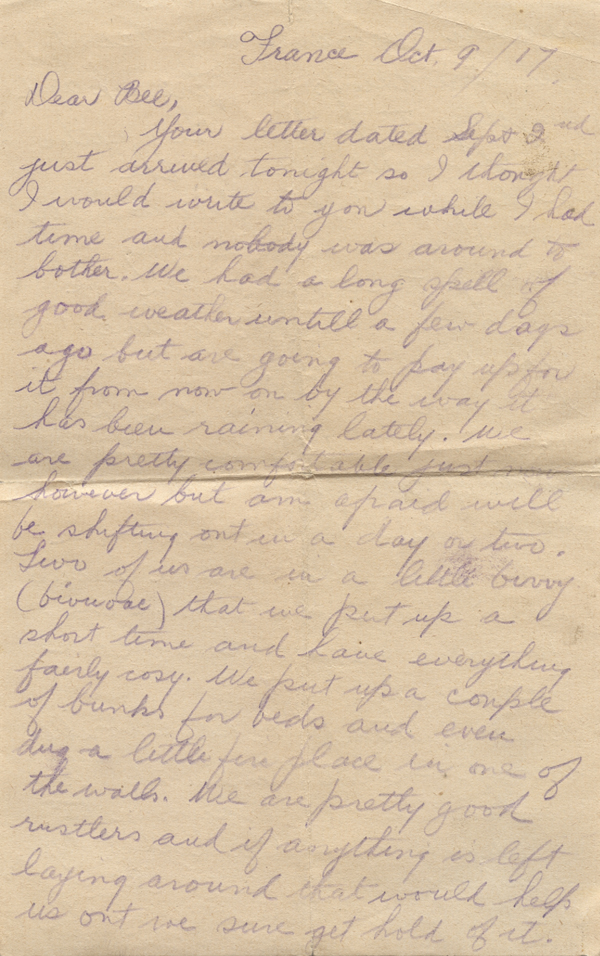 France Oct. 9/17
Dear Bee,
Your letter dated Sept 2nd
just arrived tonight so I thought
I would write to you while I had
time and nobody was around to
bother. We had a long spell of
good weather untill a few days
ago but are going to pay up for
it from now on by the way it
has been raining lately. We
are pretty comfortable just now
however but am afraid will
be shifting out in a day or two.
Two of us are in a little bivvy
(bivouac) that we put up a
short time and have everything
fairly cosy. We put up a couple
of bunks for beds and even
dug a little fire place in one of
the walls. We are pretty good
rustlers and if anything is left
laying around that would help
us out we sure get hold of it.